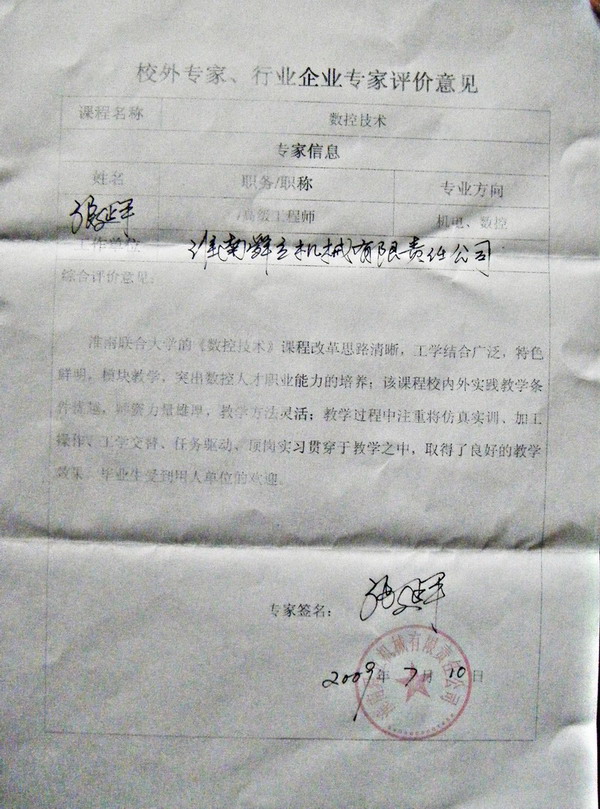 校外专家、行业企业专家评价意见
课程名称 数控技术
专家信息
姓名 职务/职称 专业方向
高级工程师 机电、数控
工作单位 淮南舜立机械有限责任公司
综合评价意见:
淮南联合大学的《数控技术》课程改革思路清晰，工学结合广泛，特色
鲜明，模块教学，突出数控人才职业能力的培养；该课程校内外实践教学条
件优越，师资力量雄厚，教学方法灵活；教学过程中注重将仿真实训、加工
操作、工学交替、任务驱动、顶岗实习贯穿于教学之中，取得了良好的教学
效果，毕业生受到用人单位的欢迎。
专家签名：
机械有限责任公司
2009年 7月 10日